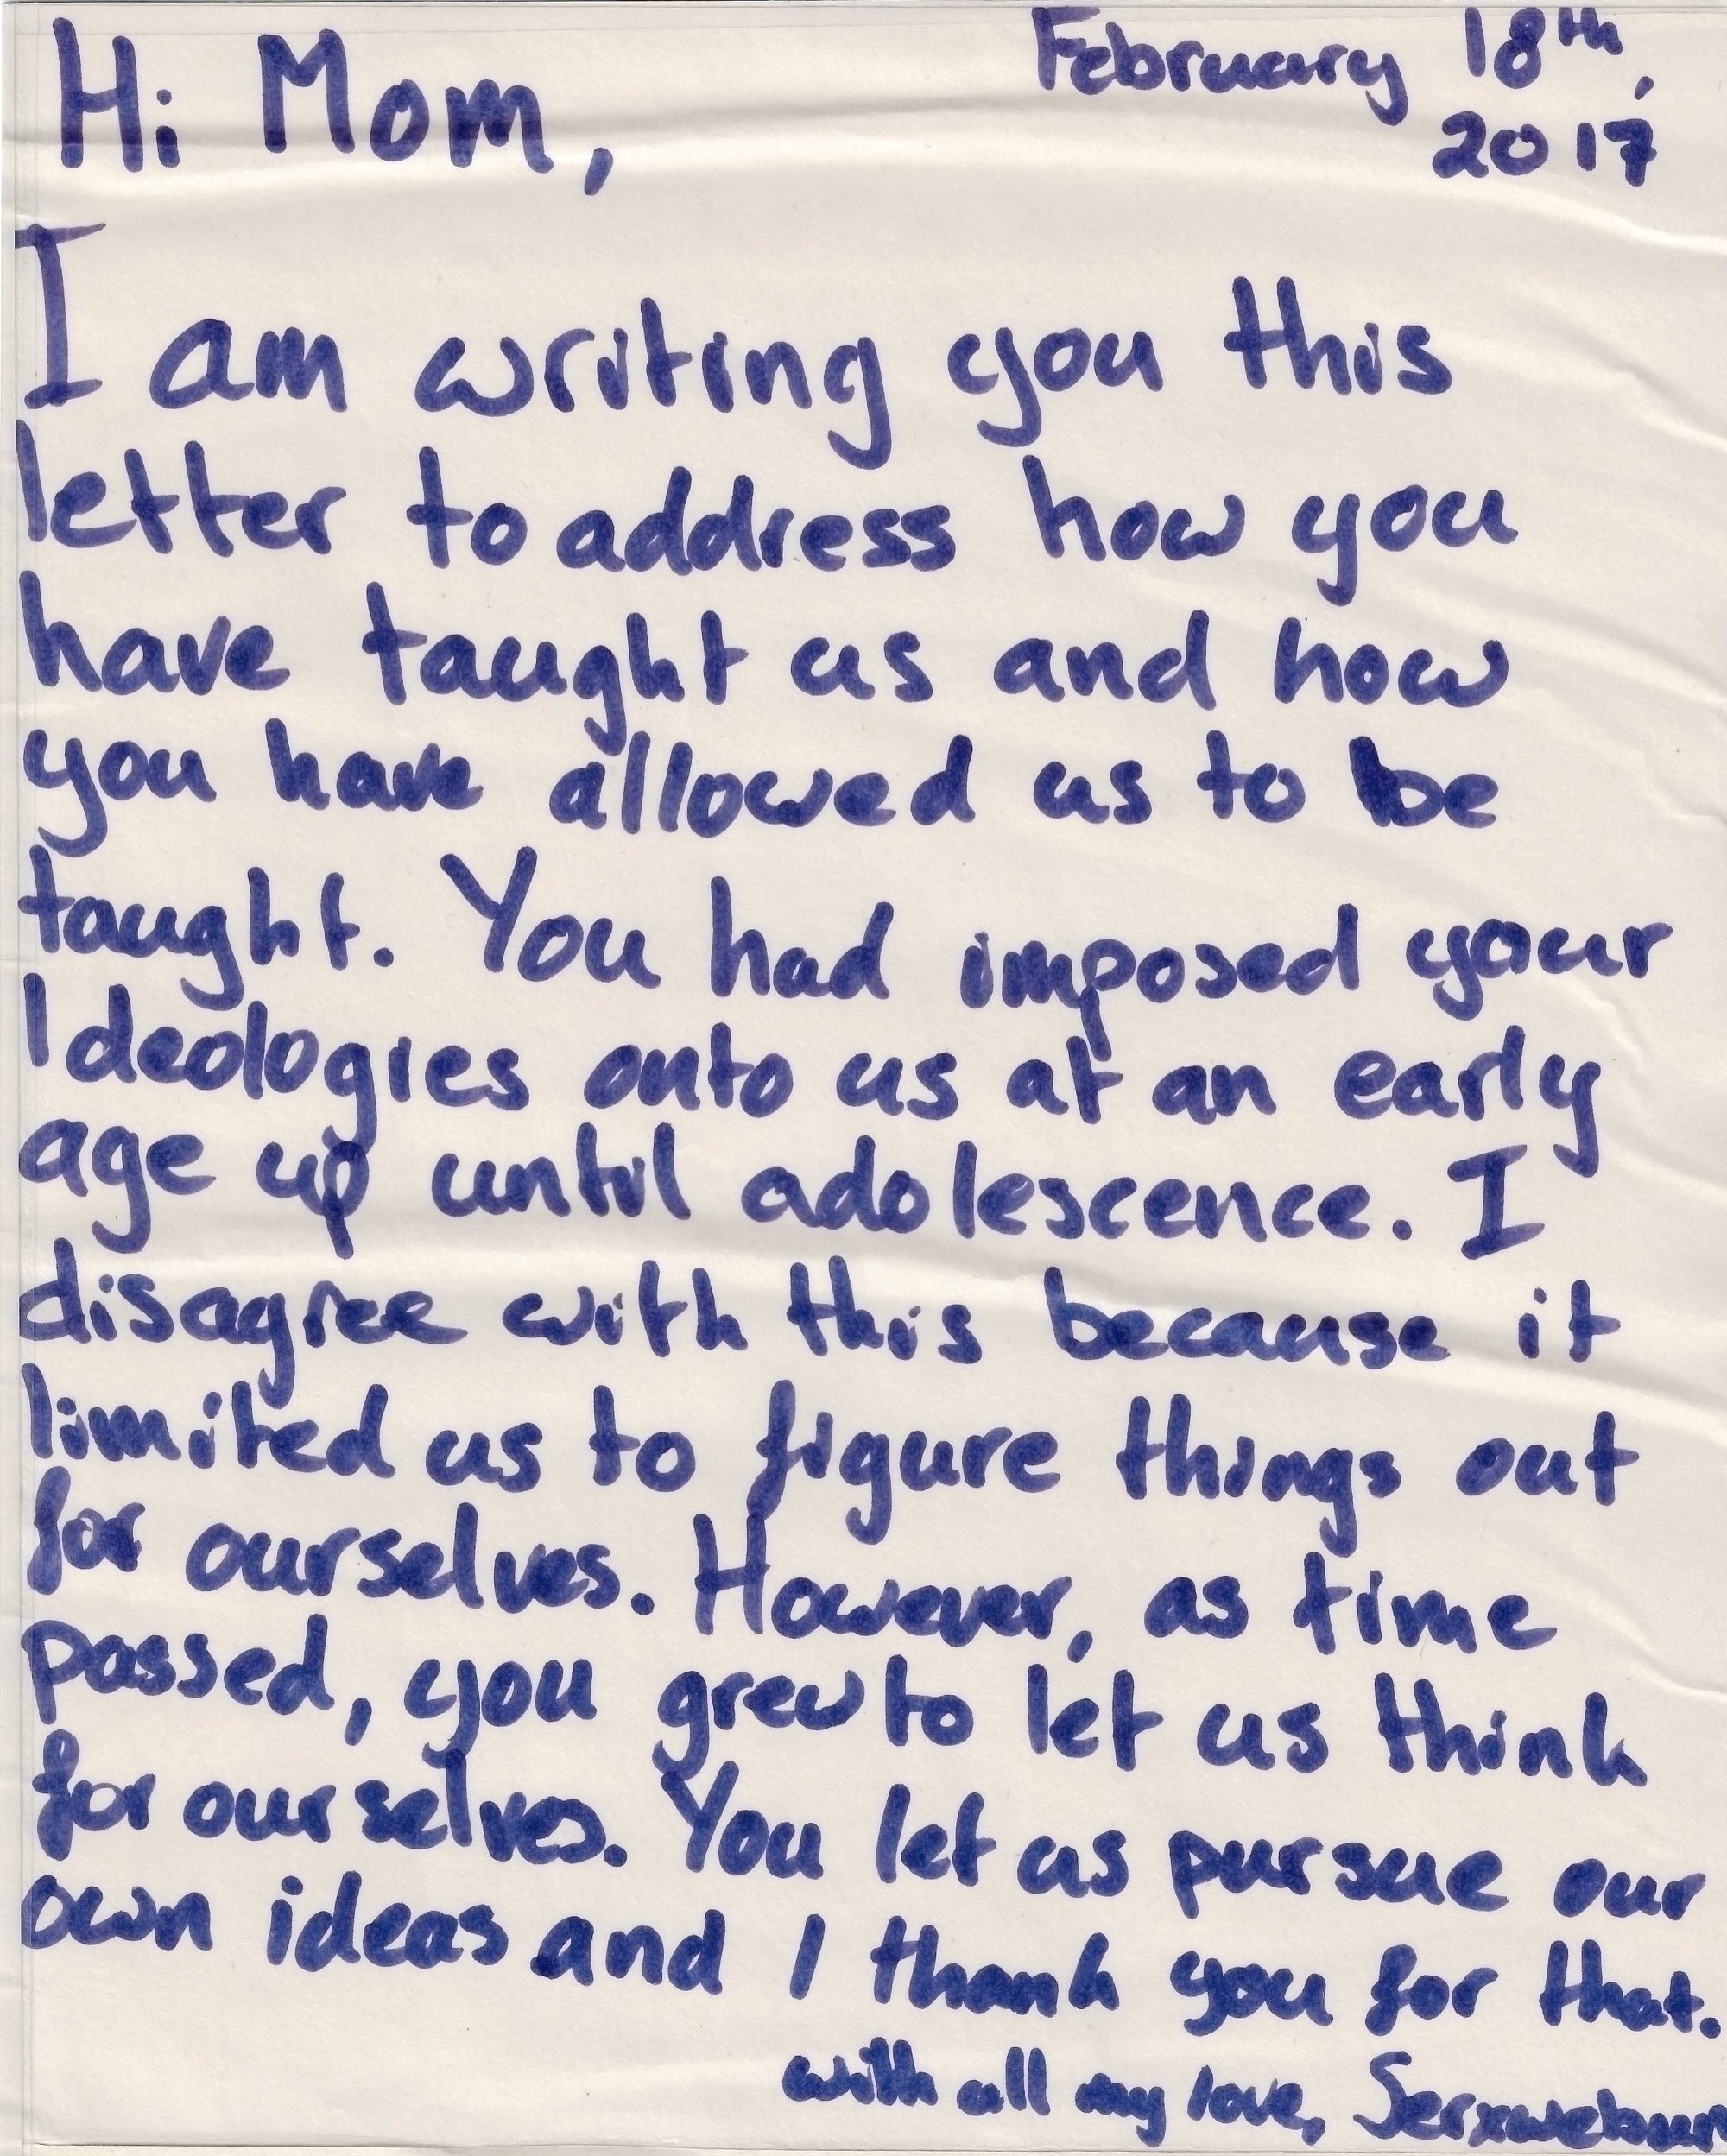 Hi Mom,
February 18th,
2017
I am writing you this
letter to address how you
have taught us and how
you have allowed us to be
taught. You had imposed your
Ideologies onto us at an early
age up until adolescence. I
disagree with this because it
limited us to figure things out
for ourselves. However, as time
passed, you grew to let us think
for ourselves. You let us pursue our
own ideas and I thank you for that.
with all my love, Serxwebun